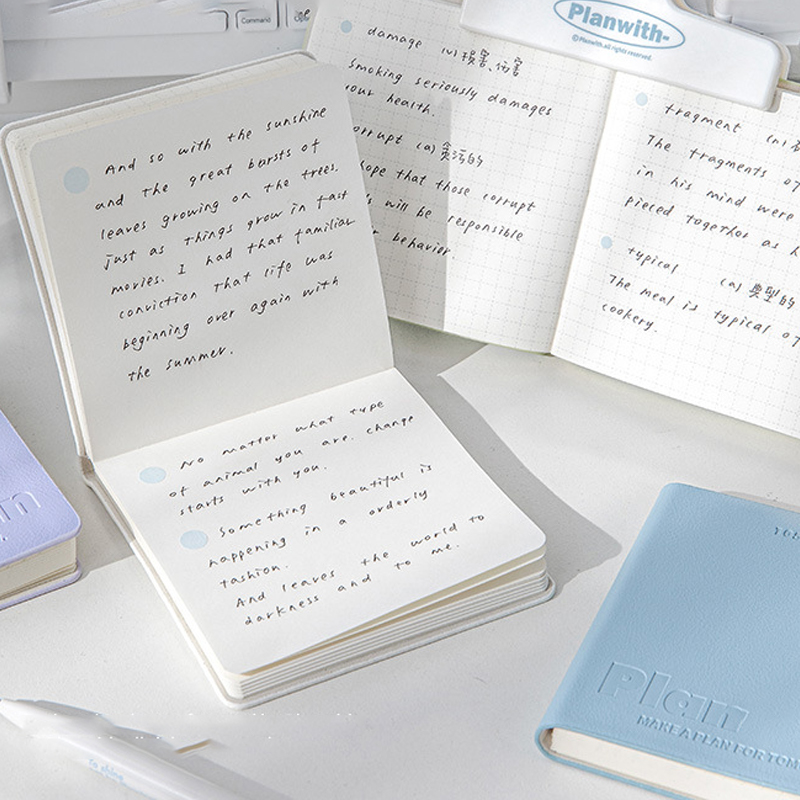 Command
Planwith-
©Planwith.all rights reserved.
And so with the sunshine
and the great bursts of
leaves growing on the trees.
just as things grow in fast
movies. I had that familiar
conviction that life was
beginning over again with
the summer.
No matter what type
of animal you are. change
starts with you.
Something beautiful is
happening in a orderly
fashion.
And leaves the world to
darkness and to me.
damage (v)損害、伤害
Smoking seriously damages
your health.
corrupt (a)貪污的
hope that those corrupt
will be responsible
behavior.
fragment (n)
The fragments of
in his mind were
pieced together as
typical (a)典型的
The meal is typical of
cookery.
Plan
MAKE A PLAN FOR TOM
To shine